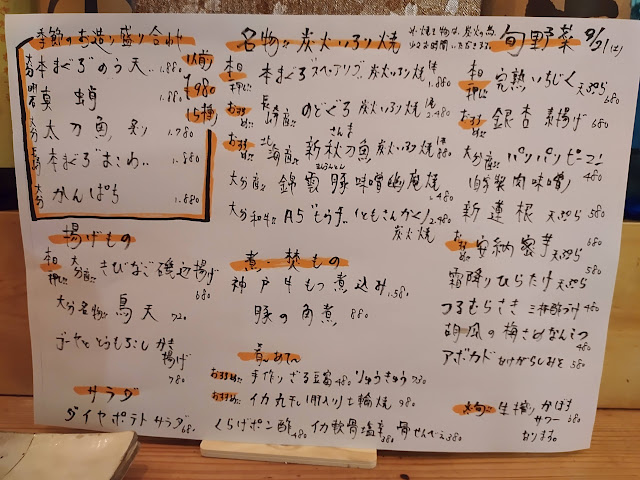 季節のお造り盛り合わせ
大分 本まぐろのう天 1.880
1人前 ¥980 (5種)
明石 真蛸 1.880
大分 太刀魚炙り 1.780
長崎 本まぐろ 1.880
大分 かんぱち 1.880
揚げもの
本日 大分産!! きびなご磯辺揚げ 680
大分名物!! 鳥天 720
ゴーヤととうもろこし かき揚げ 780
サラダ
ダイヤポテトサラダ 680
名物!! 炭火いろり焼
本日 本まぐろスペアリブ 炭火いろり焼 1.880
おすすめ!! 長崎産!! のどぐろ 炭火いろり焼 2.480
おすすめ!! 北海道産 新秋刀魚 さんま 炭火いろり焼 880
大分産!! 錦雲豚 味噌幽庵焼 1.480
大分和牛!! A5 もうす (ともさんかく) 2.480
炭火焼
煮・焚もの
神戸牛もつ煮込み 1.580
豚の角煮 880
おすすめ!! 手作りざる豆腐 480 りゅうきゅう 730
おすすめ!! イカ丸干し 七輪焼 980
くらげポン酢 480 イカ軟骨塩辛 380 骨せんべえ 380
旬野菜 9/21(土)
本日 完熟いちじく 天ぷら 680
おすすめ!! 銀杏 素揚げ 680
大分産!! パリパリピーマン 480
自家製肉味噌
新蓮根 天ぷら 580
おすすめ 安納蜜芋 天ぷら 680
霜降りひらたけ 天ぷら 580
つるむらさき 三杯酢づけ 480
胡瓜の梅さめなんこつ 480
アボカド わけがらしみそ 580
生搾り かぼすサワー 680
あります。